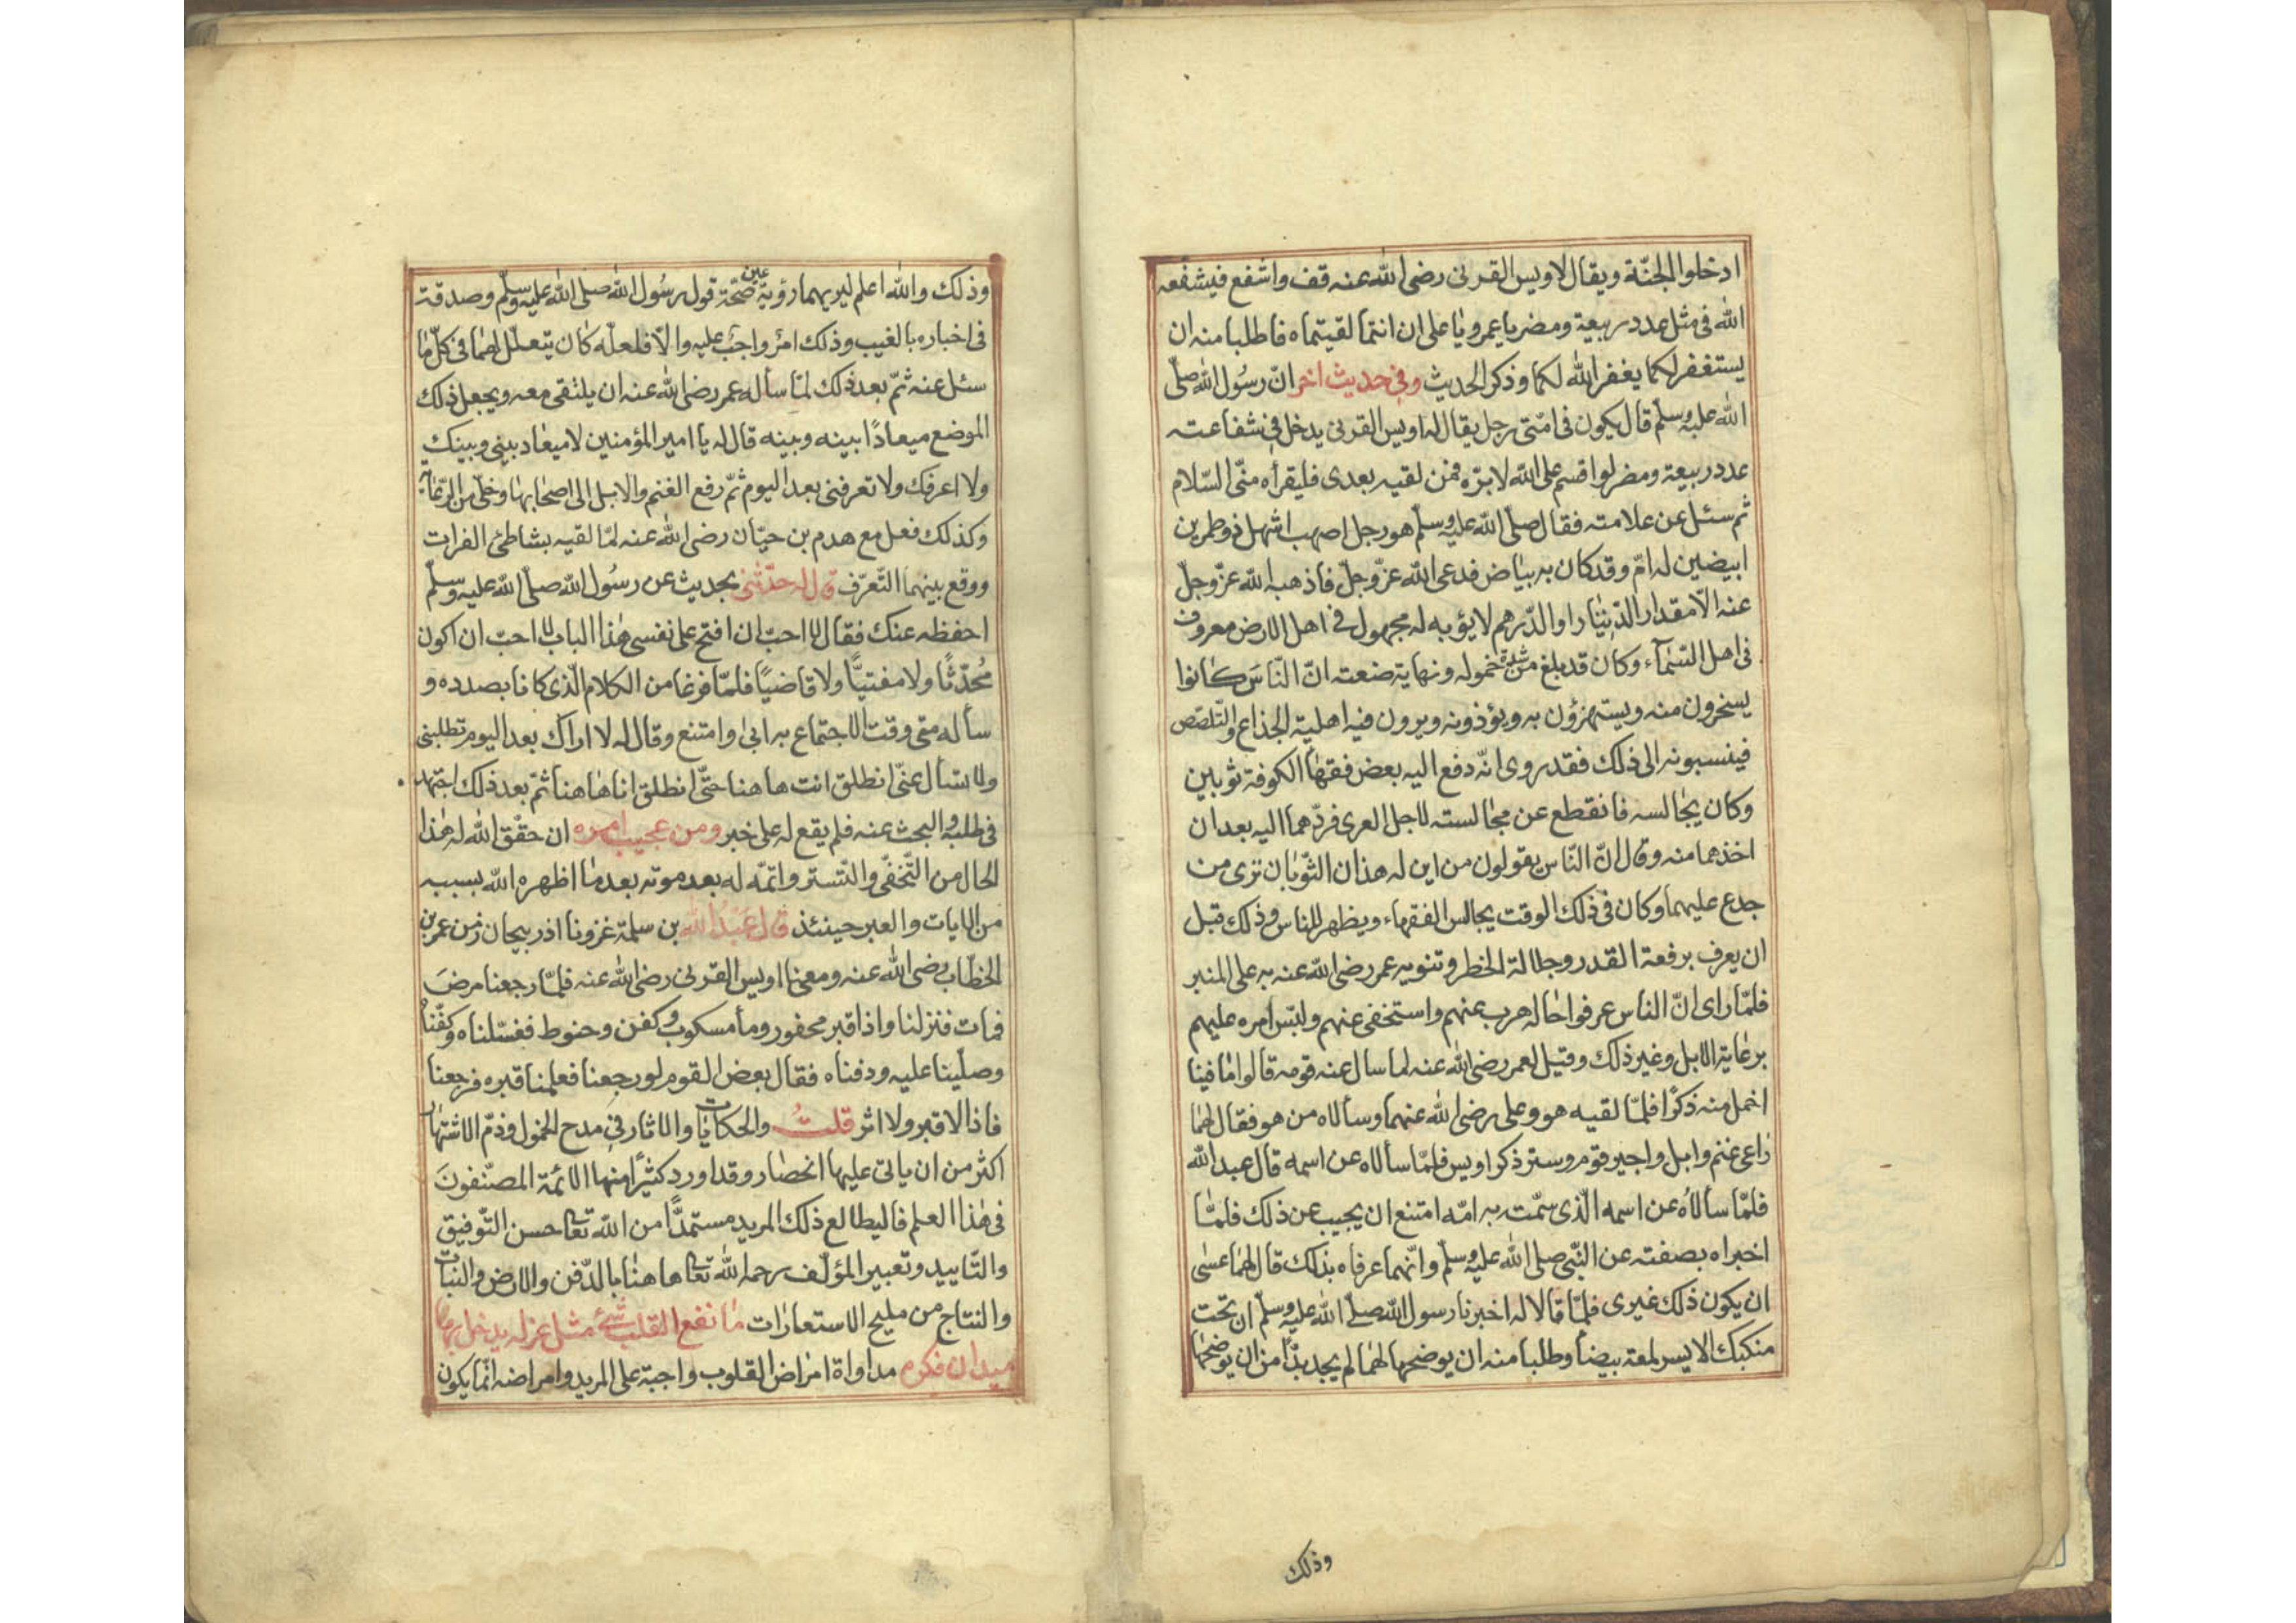 ادخلوا الجنّة ويقال لاويس القرنى رضى الله عنه قف واشفع فيشفعه
الله فى مثل عدد ربيعة ومضر يا عمر ويا على ان انتما لقيتماه فاطلبا منه ان
يستغفر لكما يغفر الله لكما وذكر الحديث وفى حديث اخر انّ رسُول الله صلّى
الله عليه وسلّم قال يكون فى امّتى رجل يقال له اويس القرنى يدخل فى شفاعته
عدد ربيعة ومضر لو اقسم على الله لابرّه فمن لقيه بعدى فليقرأه منّى السّلام
ثم سئل عن علامته فقال صلّى الله عليه وسلّم هو رجل اصهب اشهل ذو طمرين
ابيضين له امّ وقد كان به بياض فدعى الله عزّ وجلّ فاذهبه الله عزّ وجلّ
عنه الّا مقدار الدّينار او الدّرهم لا يؤبه له مجهول فى اهل الارض معروف
فى اهل السّمآء وكان قد بلغ من شدة خموله ونهاية ضعته انّ النّاسَ كانوا
يسخرون منه ويستهزؤن به ويؤذونه ويرون فيه اهلية الخداع والتّلصّص
فينسبونه الى ذلك فقد روى انّه دفع اليه بعض فقهآ الكوفة ثوبين
وكان يجالسه فانقطع عن مجالسته لاجل العرى فردّهما اليه بعد ان
اخذهما منه وقال انّ النّاس يقولون من اين له هذان الثّوبان ترى من
جدع عليهما وكان فى ذلك الوقت يجالس الفقهاء ويظهر للناس وذلك قبل
ان يعرف برفعة القدر وجلالة الخطر وتنويه عمر رضى الله عنه به على المنبر
فلمّا راى انّ الناس عرفوا حاله هرب عنهم واستخفى عنهم ولبّس امره عليهم
برعاية الابل وغير ذلك وقيل لعمر رضى الله عنه لما سال عنه قومه قالوا ما فينا
اخمل منه ذكرًا فلمّا لقيه هو وعلى رضى الله عنهما وسألاه من هو فقال لهما
راعى غنم وابل واجير قوم وستر ذكر اويس فلمّا سألاه عن اسمه قال عبد الله
فلمّا سألاهُ عن اسمه الّذى سمّته به امّه امتنع ان يجيب عن ذلك فلمّا
اخبراه بصفته عن النّبى صلى الله عليه وسلّم وانّهما عرفاه بذلك قال لهما عسى
ان يكون ذلك غيرى فلمّا قالا له اخبرنا رسول الله صلّى الله عليه وسلّم ان تحت
منكبك الايسر لمعة بيضآ وطلبا منه ان يوضحها لهما لم يجد بدًّا من ان يوضحها
وذلك
وذلك والله اعلم ليريهما رؤية عين صحّة قول رسُول الله صلى الله عليه وسلّم وصدقة
فى اخباره بالغيب وذلك امرٌ واجبٌ عليه والّا فلعلّه كان يتعلّل لهما فى كلّ ما
سئل عنه ثمّ بعد ذلك لمّا سأله عمر رضى الله عنه ان يلتقى معه ويجعل ذلك
الموضع ميعادًا بينه وبينه قال له يا امير المؤمنين لا ميعاد بينى وبينك
ولا اعرفك ولا تعرفنى بعد اليوم ثمّ رفع الغنم والابل الى اصحابها وخلّى من الرّعاية
وكذلك فعل مع هدم بن حيّان رضى الله عنه لمّا لقيه بشاطئ الفرات
ووقع بينهما التّعرّف قال له حدّثنى بحديث عن رسُول الله صلّى الله عليه وسلّم
احفظه عنك فقال لا احبّ ان افتح على نفسى هذا الباب لا احبّ ان اكون
مُحدّثًا ولا مفتيًّا ولا قاضيًا فلمّا فرغا من الكلام الّذى كانا بصدده و
سأله متى وقت الاجتماع به ابىٰ وامتنع وقال له لا اراك بعد اليوم تطلبنى
ولا تسأل عنّى انطلق انت هاهنا حتّى انطلق انا هاهنا ثمّ بعد ذلك اجتهد
فى طلبه والبحث عنه فلم يقع له على خبر ومن عجيب امره ان حقّق الله له هذا
الحال من التّخفّى والتّستر واتمّه له بعد موته بعد ما اظهره الله بسببه
من الايات والعبر حينئذ قال عَبدُ الله بن سلمة غزونا اذربيجان زمن عمر بن
الخطّاب رضى الله عنه ومعنا اويس القرنى رضى الله عنه فلمّا رجعنا مرضَ
فمات فنزلنا واذا قبر محفور ومآ مسكوب وكفن وحنوط فغسّلناه وكفّناه
وصلّينا عليه ودفناه فقال بعض القوم لو رجعنا فعلمنا قبره فرجعنا
فاذا لا قبر ولا اثر قلتُ والحكايات والاثار فى مدح الخمول وذمّ الاشتهار
اكثر من ان ياتى عليها انحصار وقد اورد كثيرًا منها الائمّة المصنّفونَ
فى هذا العلم فاليطالع ذلك المريد مستمدًّا من الله تعا حسن التّوفيق
والتّاييد وتعبير المؤلّف رحمه الله تعا هاهنا بالدّفن والارض والنبات
والنتاج من مليح الاستعارات ما نفع القلب شئ مثل عزله يدخل بها
ميدان فكره مداواة امراض القلوب واجبة على المريد وامراضه انّما يكون